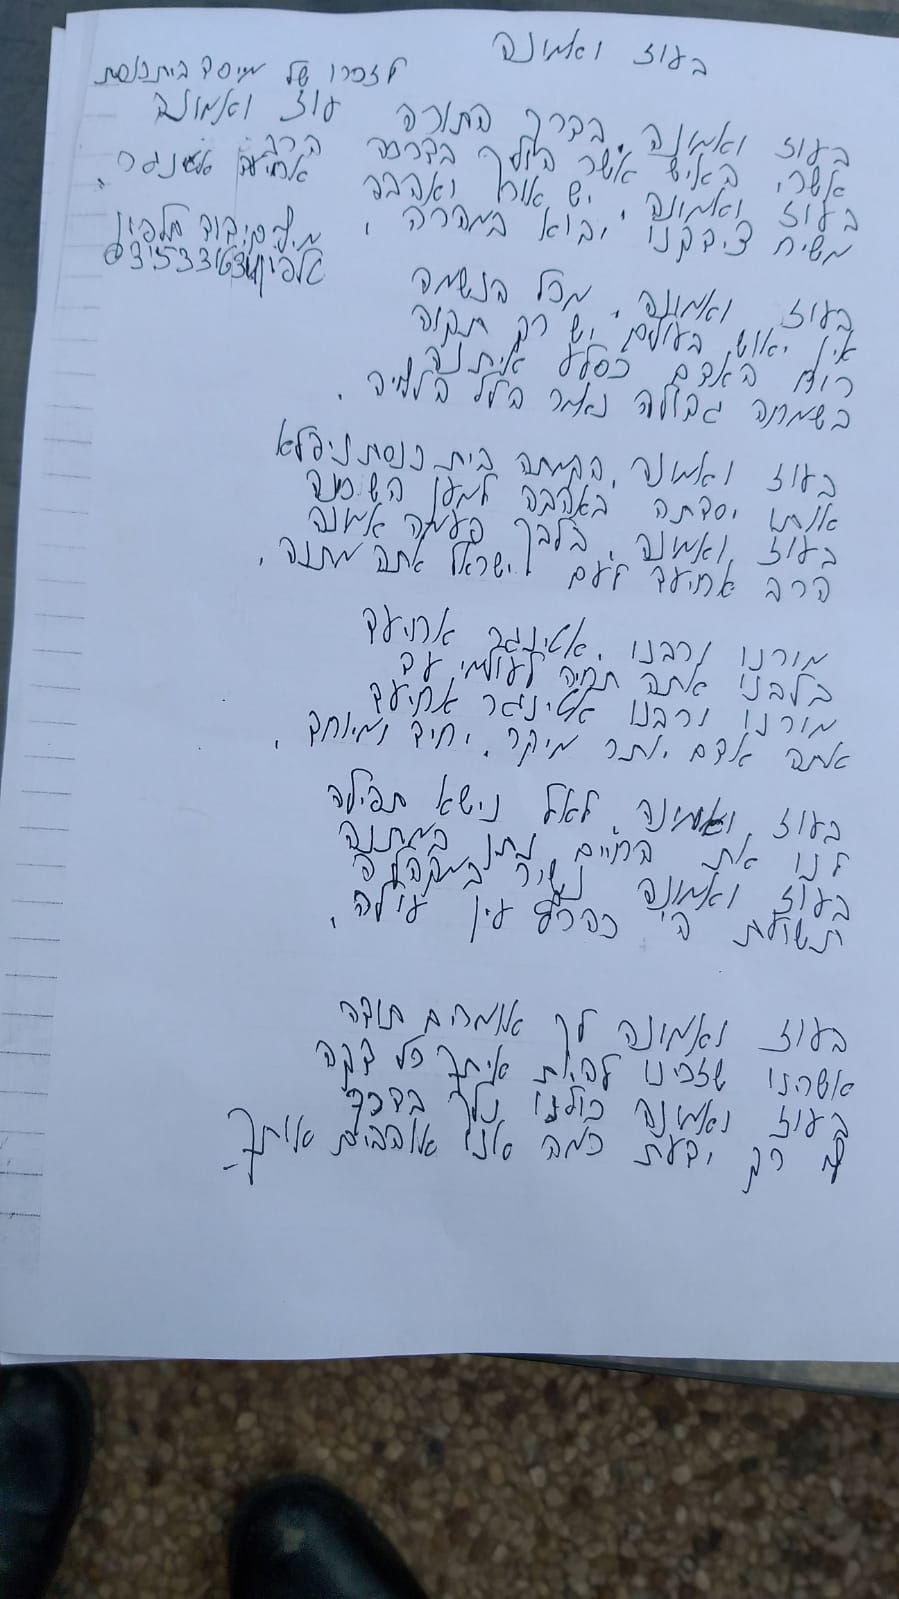 בעוז ואמונה
לזכרו של מייסד בית כנסת
עוז ואמונה
הרב
אחיעד אטינגר.
בעוז ואמונה, בדרך התורה
אשרי האיש אשר הולך בדרכה
בעוז ואמונה, יש אור ואהבה
משיח צידקנו יבוא במהרה.
בעוז ואמונה, מכל הנשמה
אין יאוש בעולם יש רק תקוה
רוח האדם כסלע איתנה
בשמחה גדולה נאמר הלל הללויה.
בעוז ואמונה, הקמתה בית כנסת ניפלא
אותו יסדתה באהבה למען השכינה
בעוז ואמונה, בלבך פעמה אמונה
הרב אחיעד לעם ישראל אתה מתנה.
מורנו ורבנו, אטינגר אחיעד
בלבנו אתה תחיה לעולמי עד
מורנו ורבנו אטינגר אחיעד
אתה אדם יותר מיקר, יחיד ומיוחד.
בעוז ואמונה, לאל נישא תפילה
לנו את החיים נתן במתנה
בעוז ואמונה נשיר במקהלה
תשועת ה' כהרף עין עולה.
בעוז ואמונה לך אומרים תודה
אשרנו שזכינו להיות איתך כל דקה
בעוז ואמונה כולנו נלך בדרכך
רק ידעת כמה אנו אוהבים אותך.